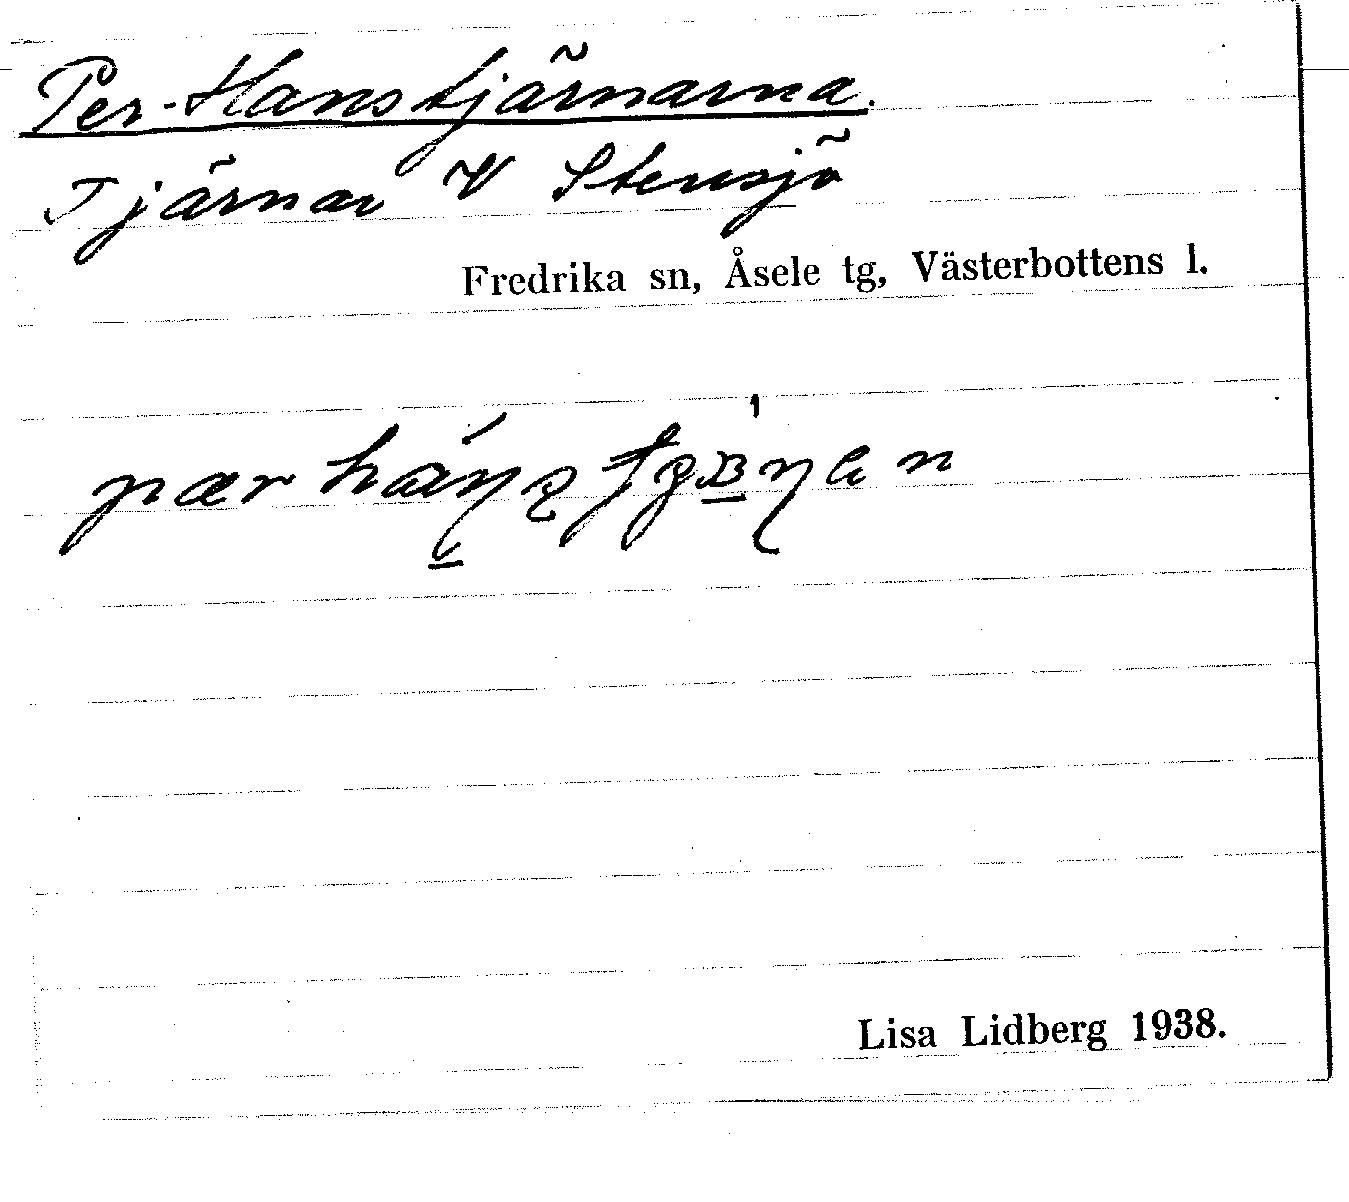 Per-Hanstjärnarna.
Tjärnar V Stensjö
Fredrika sn, Åsele tg, Västerbottens l.
pær
Lisa Lidberg 1938.